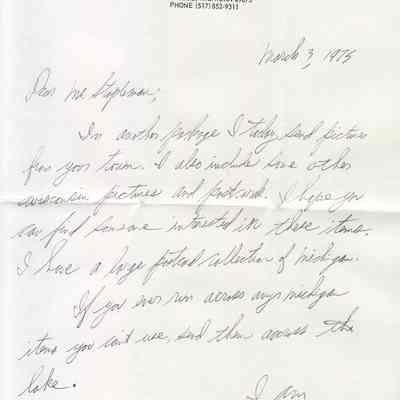 PHONE (517) 852-9311
March 3, 1975
Dear Mr Stapleman;
In another package I today send picture
from your town. I also include some other
Wisconsin pictures and postcard. I hope you
can find someone interested in these items.
I have a large postcard collection of Michigan.
If you ever run across any Michigan
items you can't use, send them across the
lake.
I am